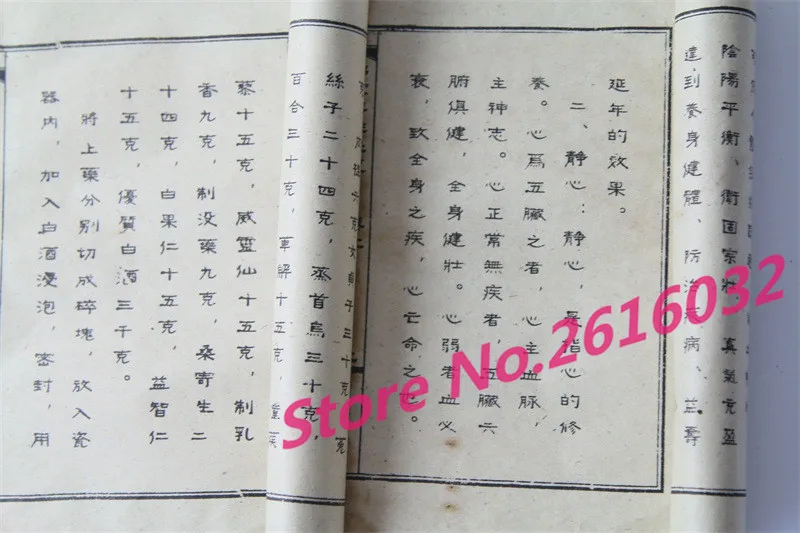 陰陽平衡、衛固宗壯、真氣充盈
達到養身健體、防治疾病、益壽
延年的效果。
二、靜心：靜心，是指心的修
養。心爲五臟之者，心主血脉，
主神志。心正常無疾者，五臟六
腑俱健，全身健壯。心弱者血必
衰，致全身之疾，心亡命之也。
克，女貞子三十克，菟
絲子二十四克，蒸首烏三十克，
百合三十克，草解十五克，童蒺
藜十五克，威靈仙十五克，制乳
香九克，制没藥九克，桑寄生二
十四克，白果仁十五克，益智仁
十五克，優質白酒三千克。
將上藥分别切成碎塊，放入瓷
器内，加入白酒浸泡，密封，用
Store No.2616032